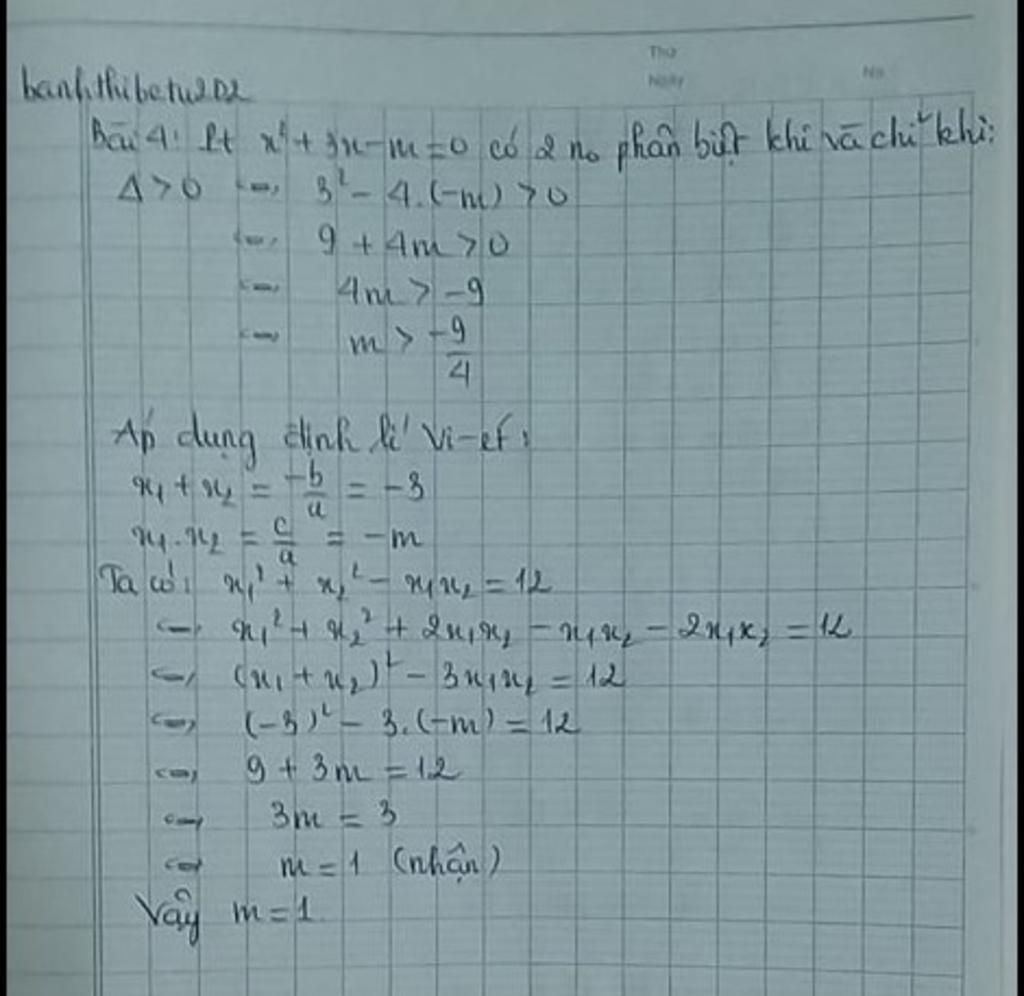 Thứ
Ngày No
banhthibetu2D2
Bài 4: Pt x² + 3x - m = 0 có 2 no phân biệt khi và chỉ khi:
Δ > 0 <=> 3² - 4.(-m) > 0
<=> 9 + 4m > 0
<=> 4m > -9
<=> m > -9/4
Áp dụng định lí Vi-et:
x₁ + x₂ = -b/a = -3
x₁.x₂ = c/a = -m
Ta có: x₁² + x₂² - x₁x₂ = 12
<=> x₁² + x₂² + 2x₁x₂ - x₁x₂ - 2x₁x₂ = 12
<=> (x₁ + x₂)² - 3x₁x₂ = 12
<=> (-3)² - 3.(-m) = 12
<=> 9 + 3m = 12
<=> 3m = 3
<=> m = 1 (nhận)
Vậy m = 1